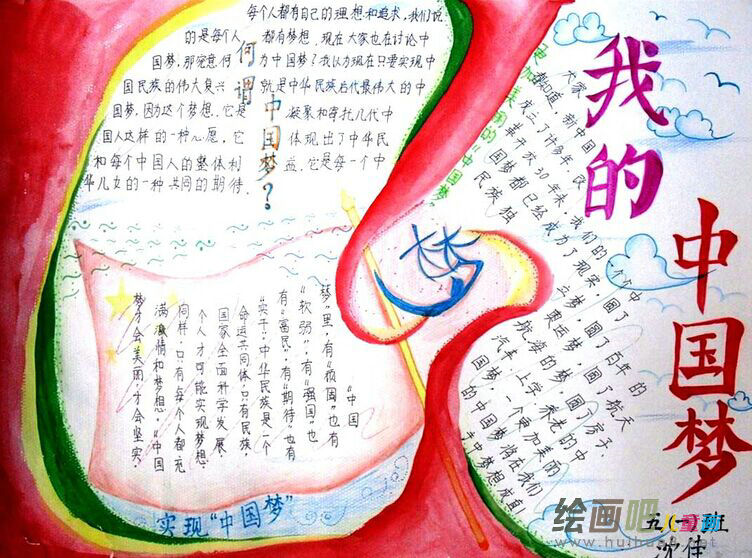 我的
中国梦
何谓中国梦?
每个人都有自己的理想和追求,我们说
的是每个人 都有梦想。现在大家也在讨论中
国梦,那究竟何 为中国梦?我认为现在只要实现中
国民族的伟大复兴 就是中华民族后代最伟大的中
国梦,因为这个梦想,它是 凝聚和寄托几代中
国人这样的一种心愿,它 体现出了中华民
和每个中国人的整体利 益,它是每一个中
华儿女的一种共同的期待.
"中国
梦"里,有"顽固"也有
"软弱",有"强国"也
有"富民",有"期待"也有
"实干"中华民族是一个
命运共同体,只有民族、
国家全面科学发展,
个人才可能实现梦想.
同样,只有每个人都充
满激情和梦想,"中国
梦才会美丽,才会坚实.
实现"中国梦"
的"中国梦"
大家
都知道,新中国
成立了许多年,改
革开放30年来,我们的一个个中
国梦都已经成为了现实,圆了百年的
奥运梦,圆了航天
航海的梦,圆了房子、
汽车、上学、养老的中
国梦,一个更加美丽
的中国梦将在我们
班
沈佳
绘画吧
www.huihua8.com
儿童画